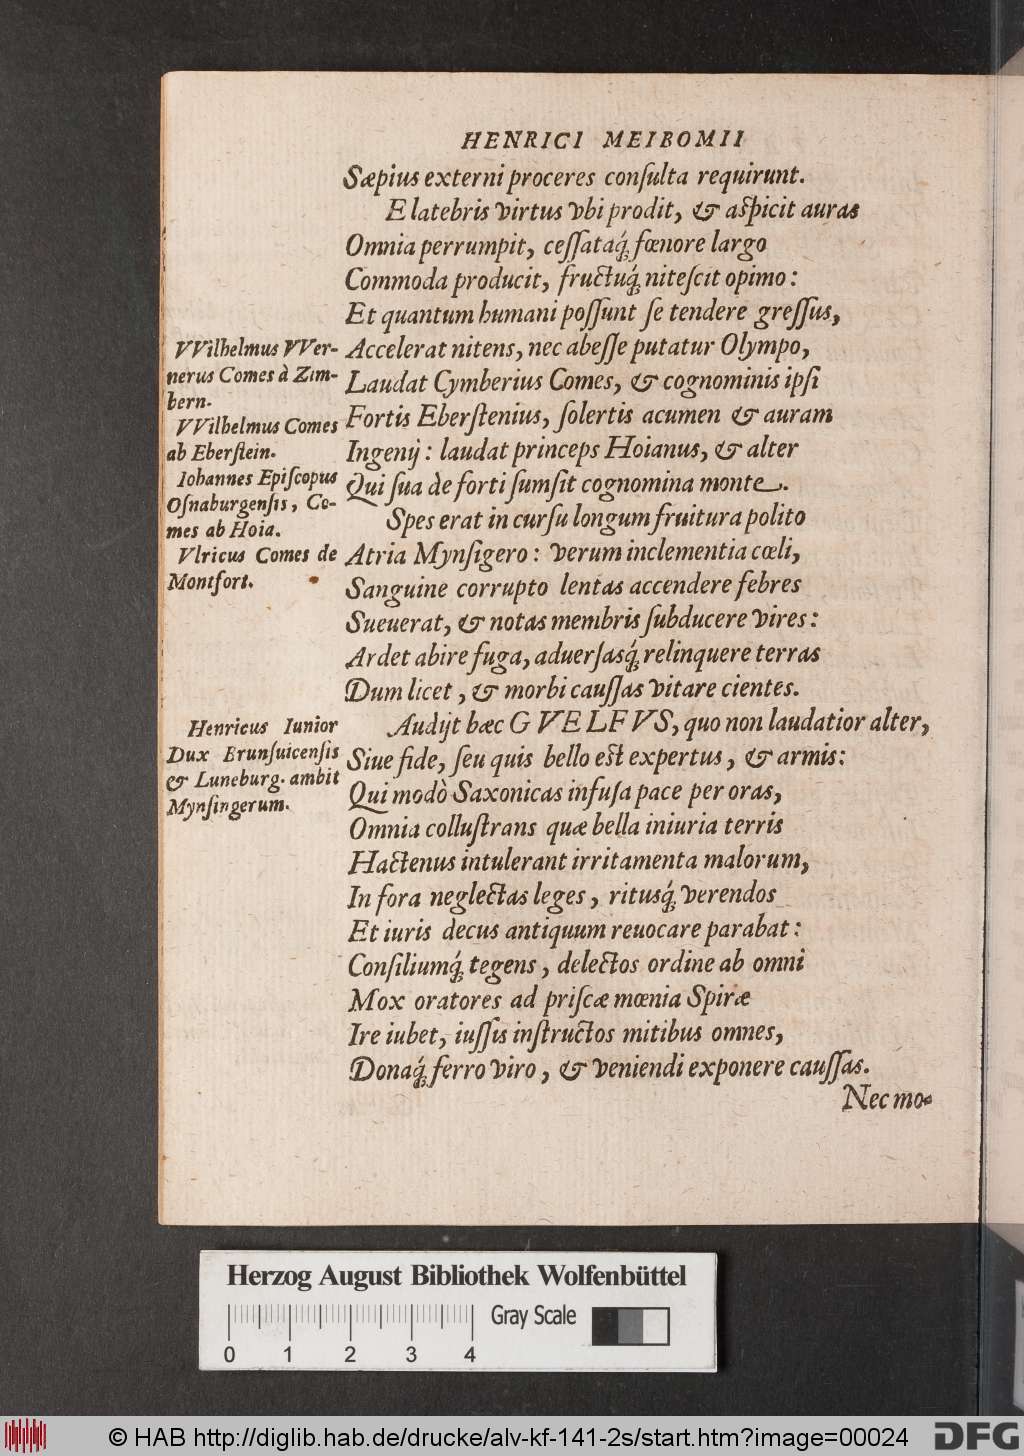 HENRICI MEIBOMII
Sæpius externi proceres conſulta requirunt.
E latebris virtus vbi prodit, & aſpicit auras
Omnia perrumpit, ceſſataq́; fœnore largo
Commoda producit, fructuq́; niteſcit opimo:
Et quantum humani poſſunt ſe tendere greſſus,
Accelerat nitens, nec abeſſe putatur Olympo,
Laudat Cymberius Comes, & cognominis ipſi
Fortis Eberſtenius, ſolertis acumen & auram
Ingenij: laudat princeps Hoianus, & alter
Qui ſua de forti ſumſit cognomina monte.
VVilhelmus VVer-
nerus Comes à Zim-
bern.
VVilhelmus Comes
ab Eberſtein.
Iohannes Epiſcopus
Oſnaburgenſis, Co-
mes ab Hoia.
Vlricus Comes de
Montfort.
Spes erat in curſu longum fruitura polito
Atria Mynſigero: verum inclementia cœli,
Sanguine corrupto lentas accendere febres
Sueuerat, & notas membris ſubducere vires:
Ardet abire fuga, aduerſasq́; relinquere terras
Dum licet, & morbi cauſſas vitare cientes.
Audijt hæc GVELFVS, quo non laudatior alter,
Siue fide, ſeu quis bello est expertus, & armis:
Qui modò Saxonicas infuſa pace per oras,
Omnia colluſtrans quæ bella iniuria terris
Hactenus intulerant irritamenta malorum,
In fora neglectas leges, ritusq́; verendos
Et iuris decus antiquum reuocare parabat:
Conſiliumq́; tegens, delectos ordine ab omni
Mox oratores ad priſcæ mœnia Spiræ
Ire iubet, iuſſis inſtructos mitibus omnes,
Donaq́; ferro viro, & veniendi exponere cauſſas.
Henricus Iunior
Dux Brunſuicenſis
& Luneburg. ambit
Mynſingerum.
Nec mo-
Herzog August Bibliothek Wolfenbüttel
Gray Scale
0 1 2 3 4
© HAB http://diglib.hab.de/drucke/alv-kf-141-2s/start.htm?image=00024
DFG